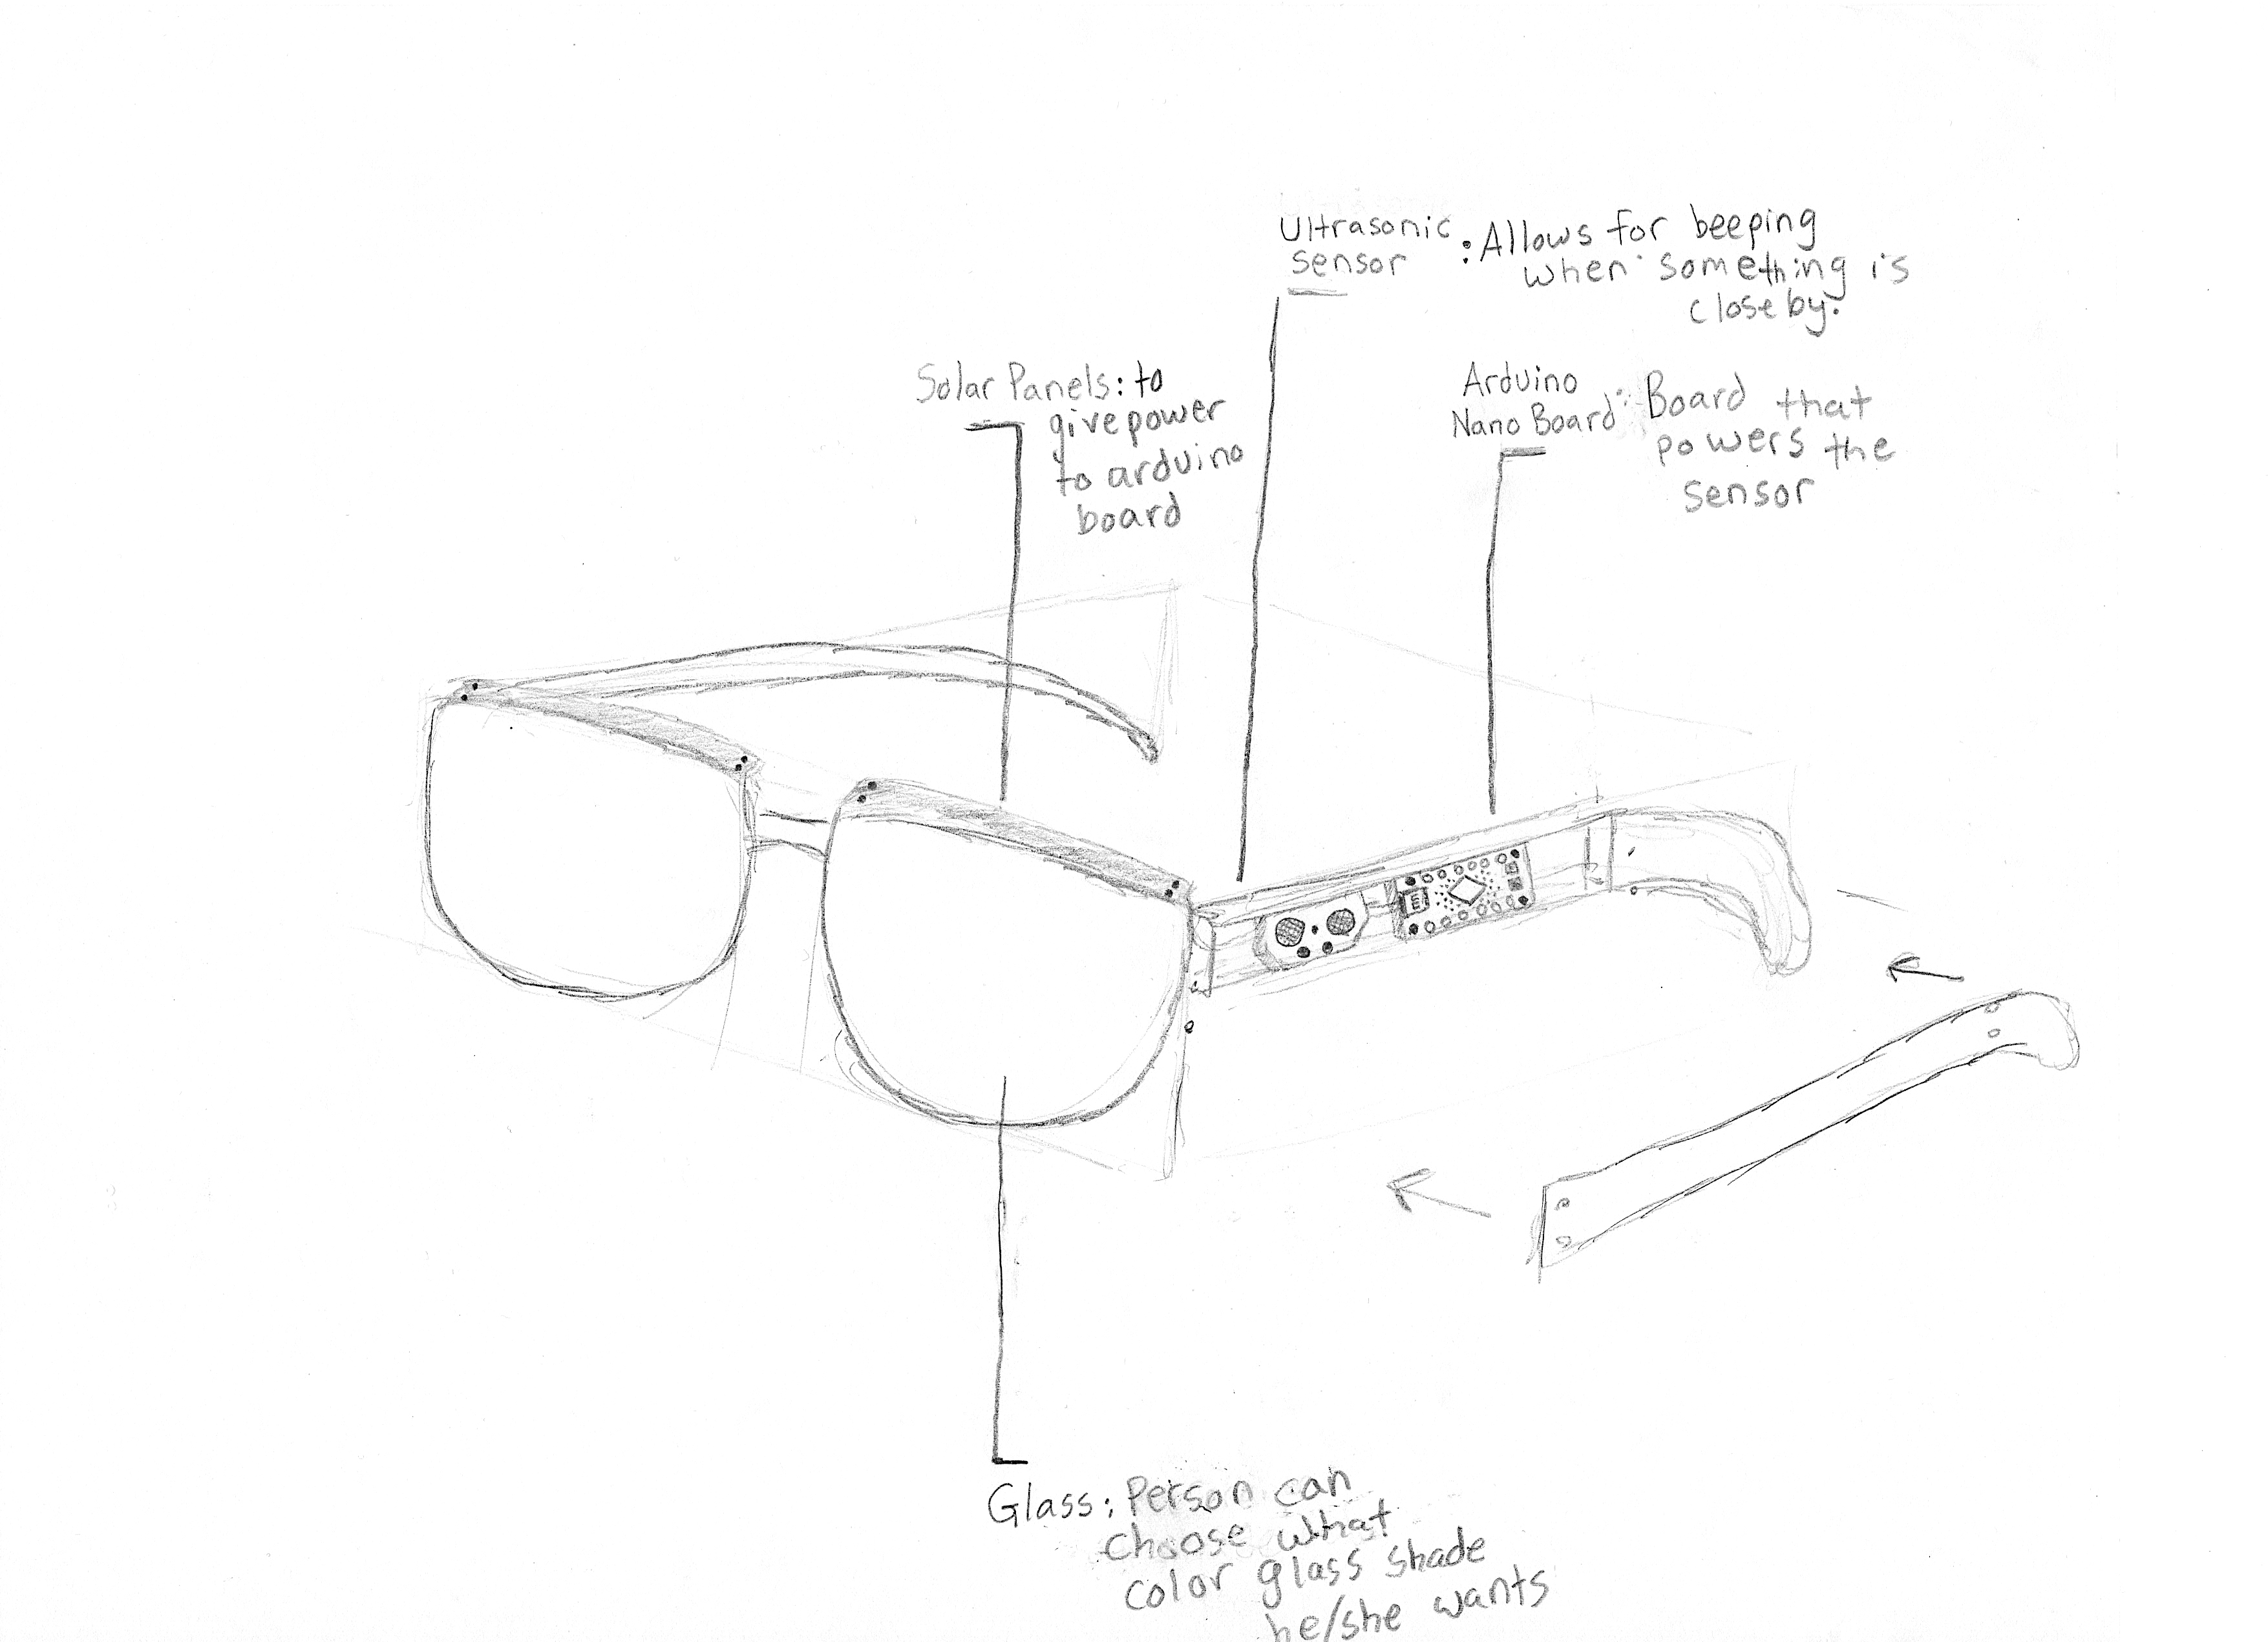 Ultrasonic
sensor
: Allows for beeping
when something is
closeby.
Solar Panels: to
give power
to arduino
board
Arduino
Nano Board:
Board that
powers the
sensor
Glass: Person can
choose what
color glass shade
he/she wants